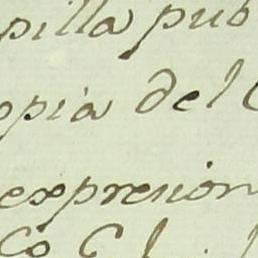 pilla pub
opia del C
expresion
Co C